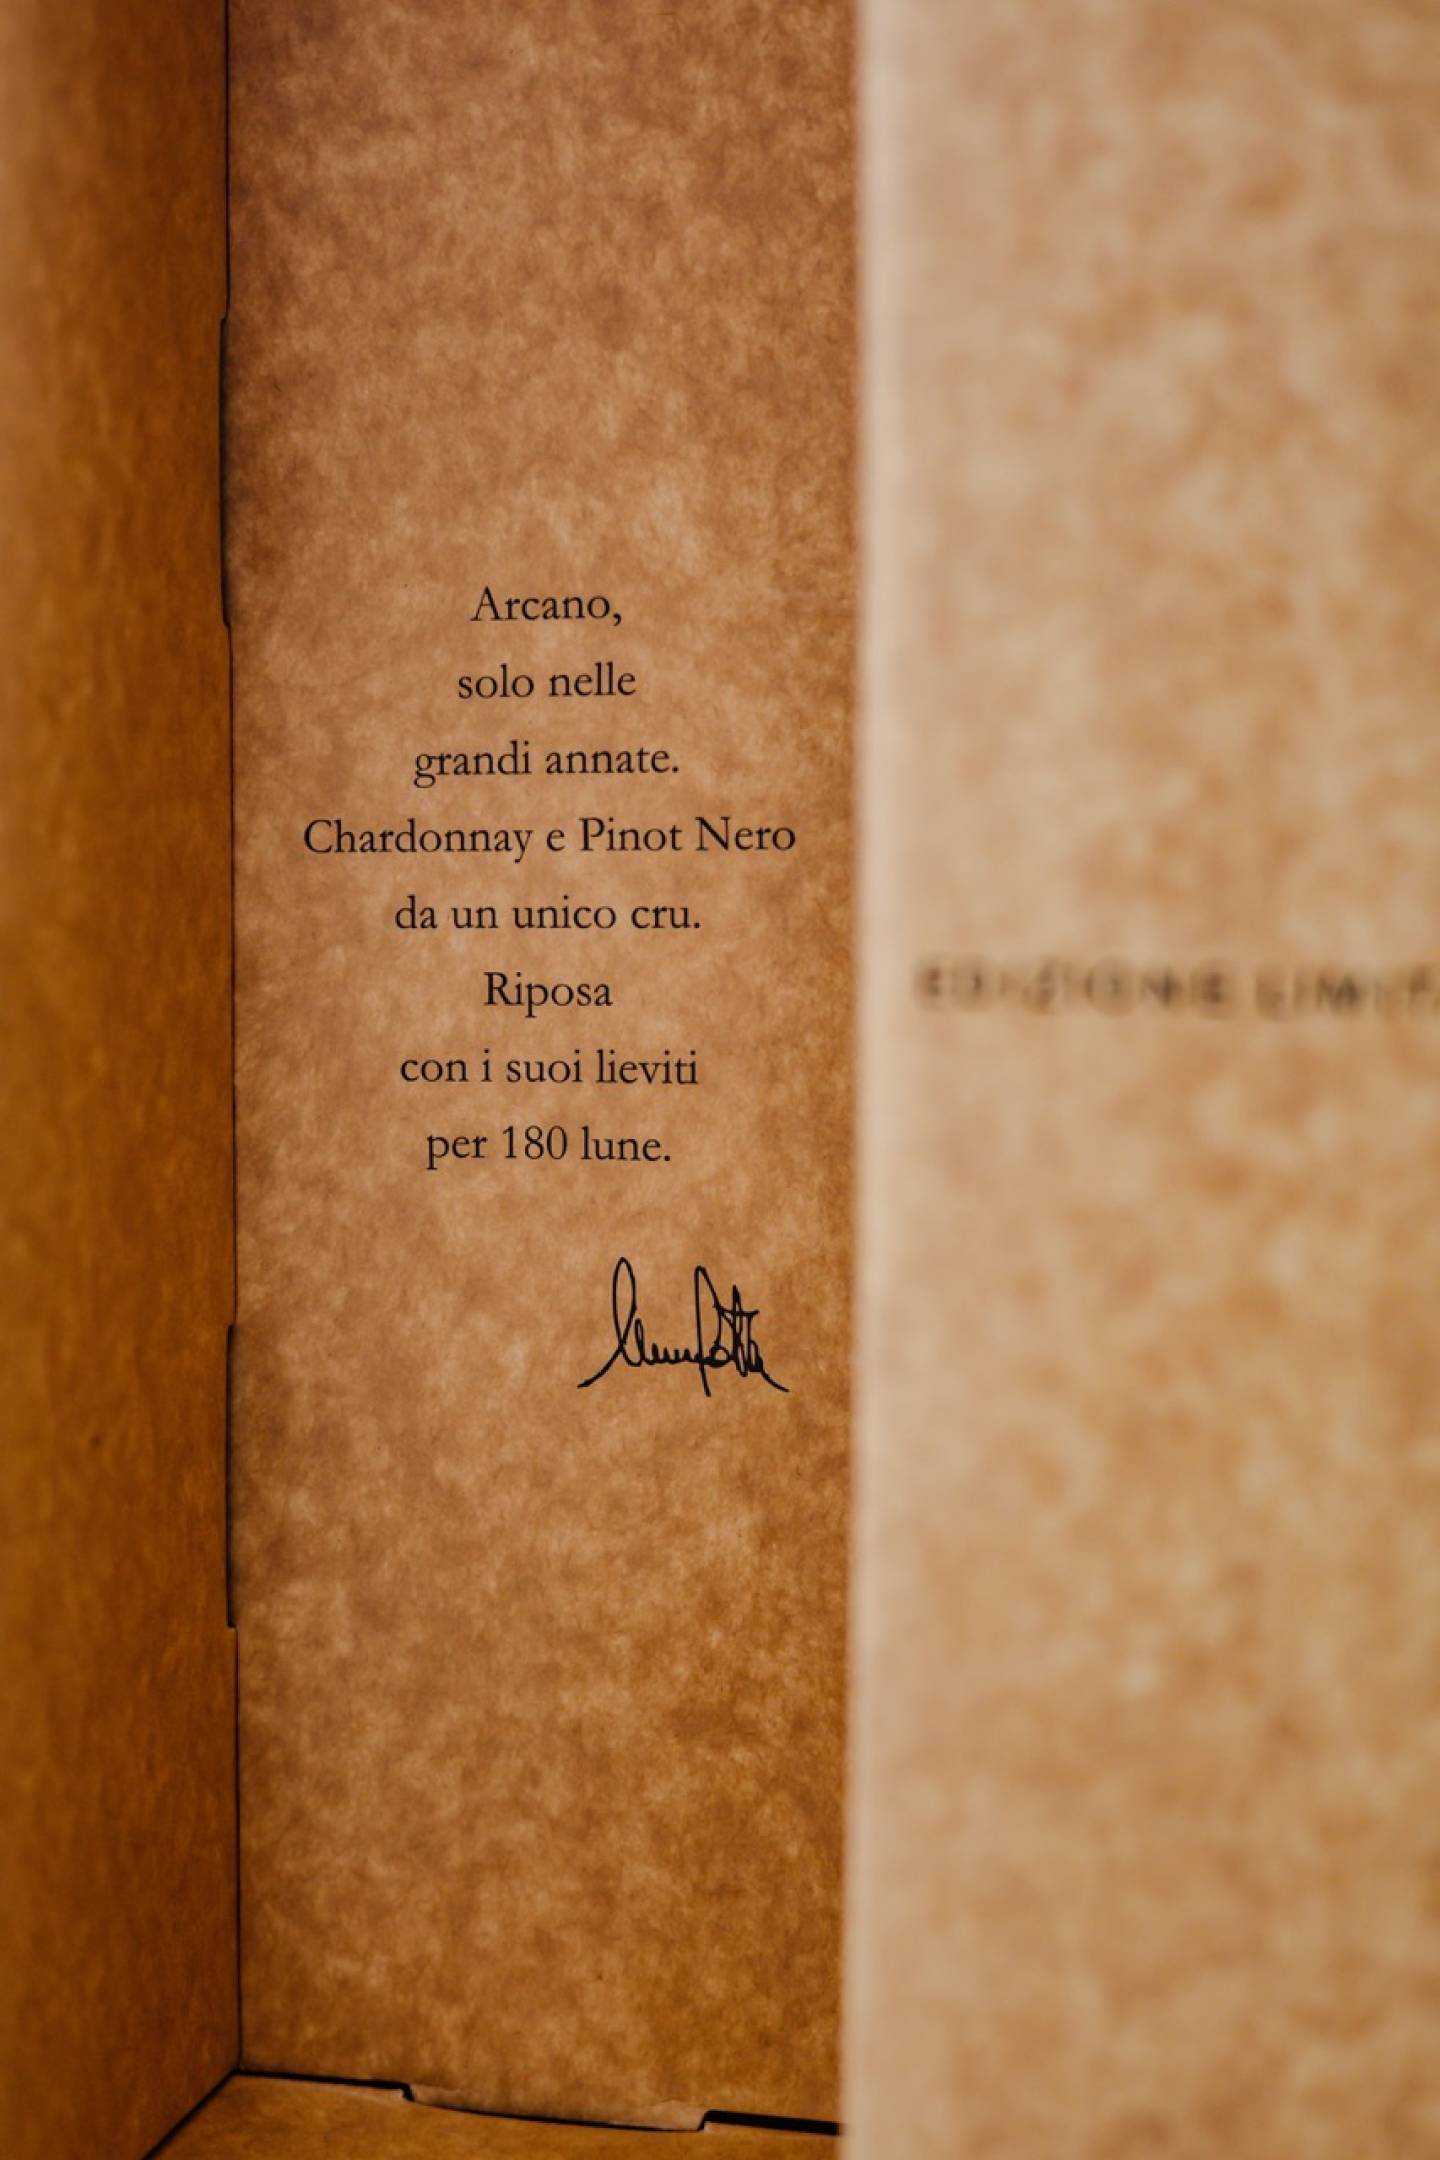 Arcano,
solo nelle
grandi annate.
Chardonnay e Pinot Nero
da un unico cru.
Riposa
con i suoi lieviti
per 180 lune.
EDIZIONE